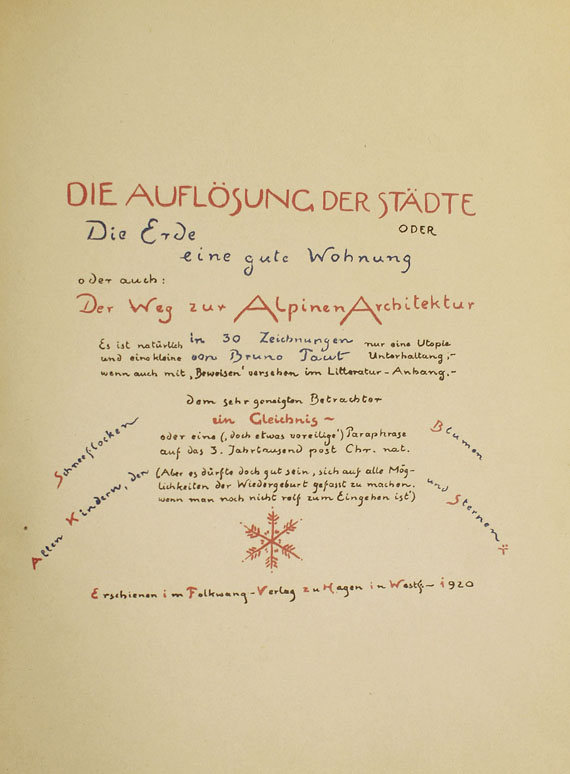 DIE AUFLÖSUNG DER STÄDTE
ODER
Die Erde
eine gute Wohnung
oder auch:
Der Weg zur Alpinen Architektur
Es ist natürlich in 30 Zeichnungen nur eine Utopie
und eine kleine von Bruno Taut Unterhaltung,-
wenn auch mit „Beweisen" versehen im Litteratur-Anhang.-
dem sehr geneigten Betrachter
ein Gleichnis ~
oder eine („doch etwas voreilige") Paraphrase
auf das 3. Jahrtausend post Chr. nat.
(Aber es dürfte doch gut sein, sich auf alle Mög-
lichkeiten der Wiedergeburt gefasst zu machen,
wenn man noch nicht reif zum Eingehen ist")
Allen Kindern, den
Schneeflocken
Blumen
und Sternen
Erschienen im Folkwang-Verlag zu Hagen in Westf.- i 1920